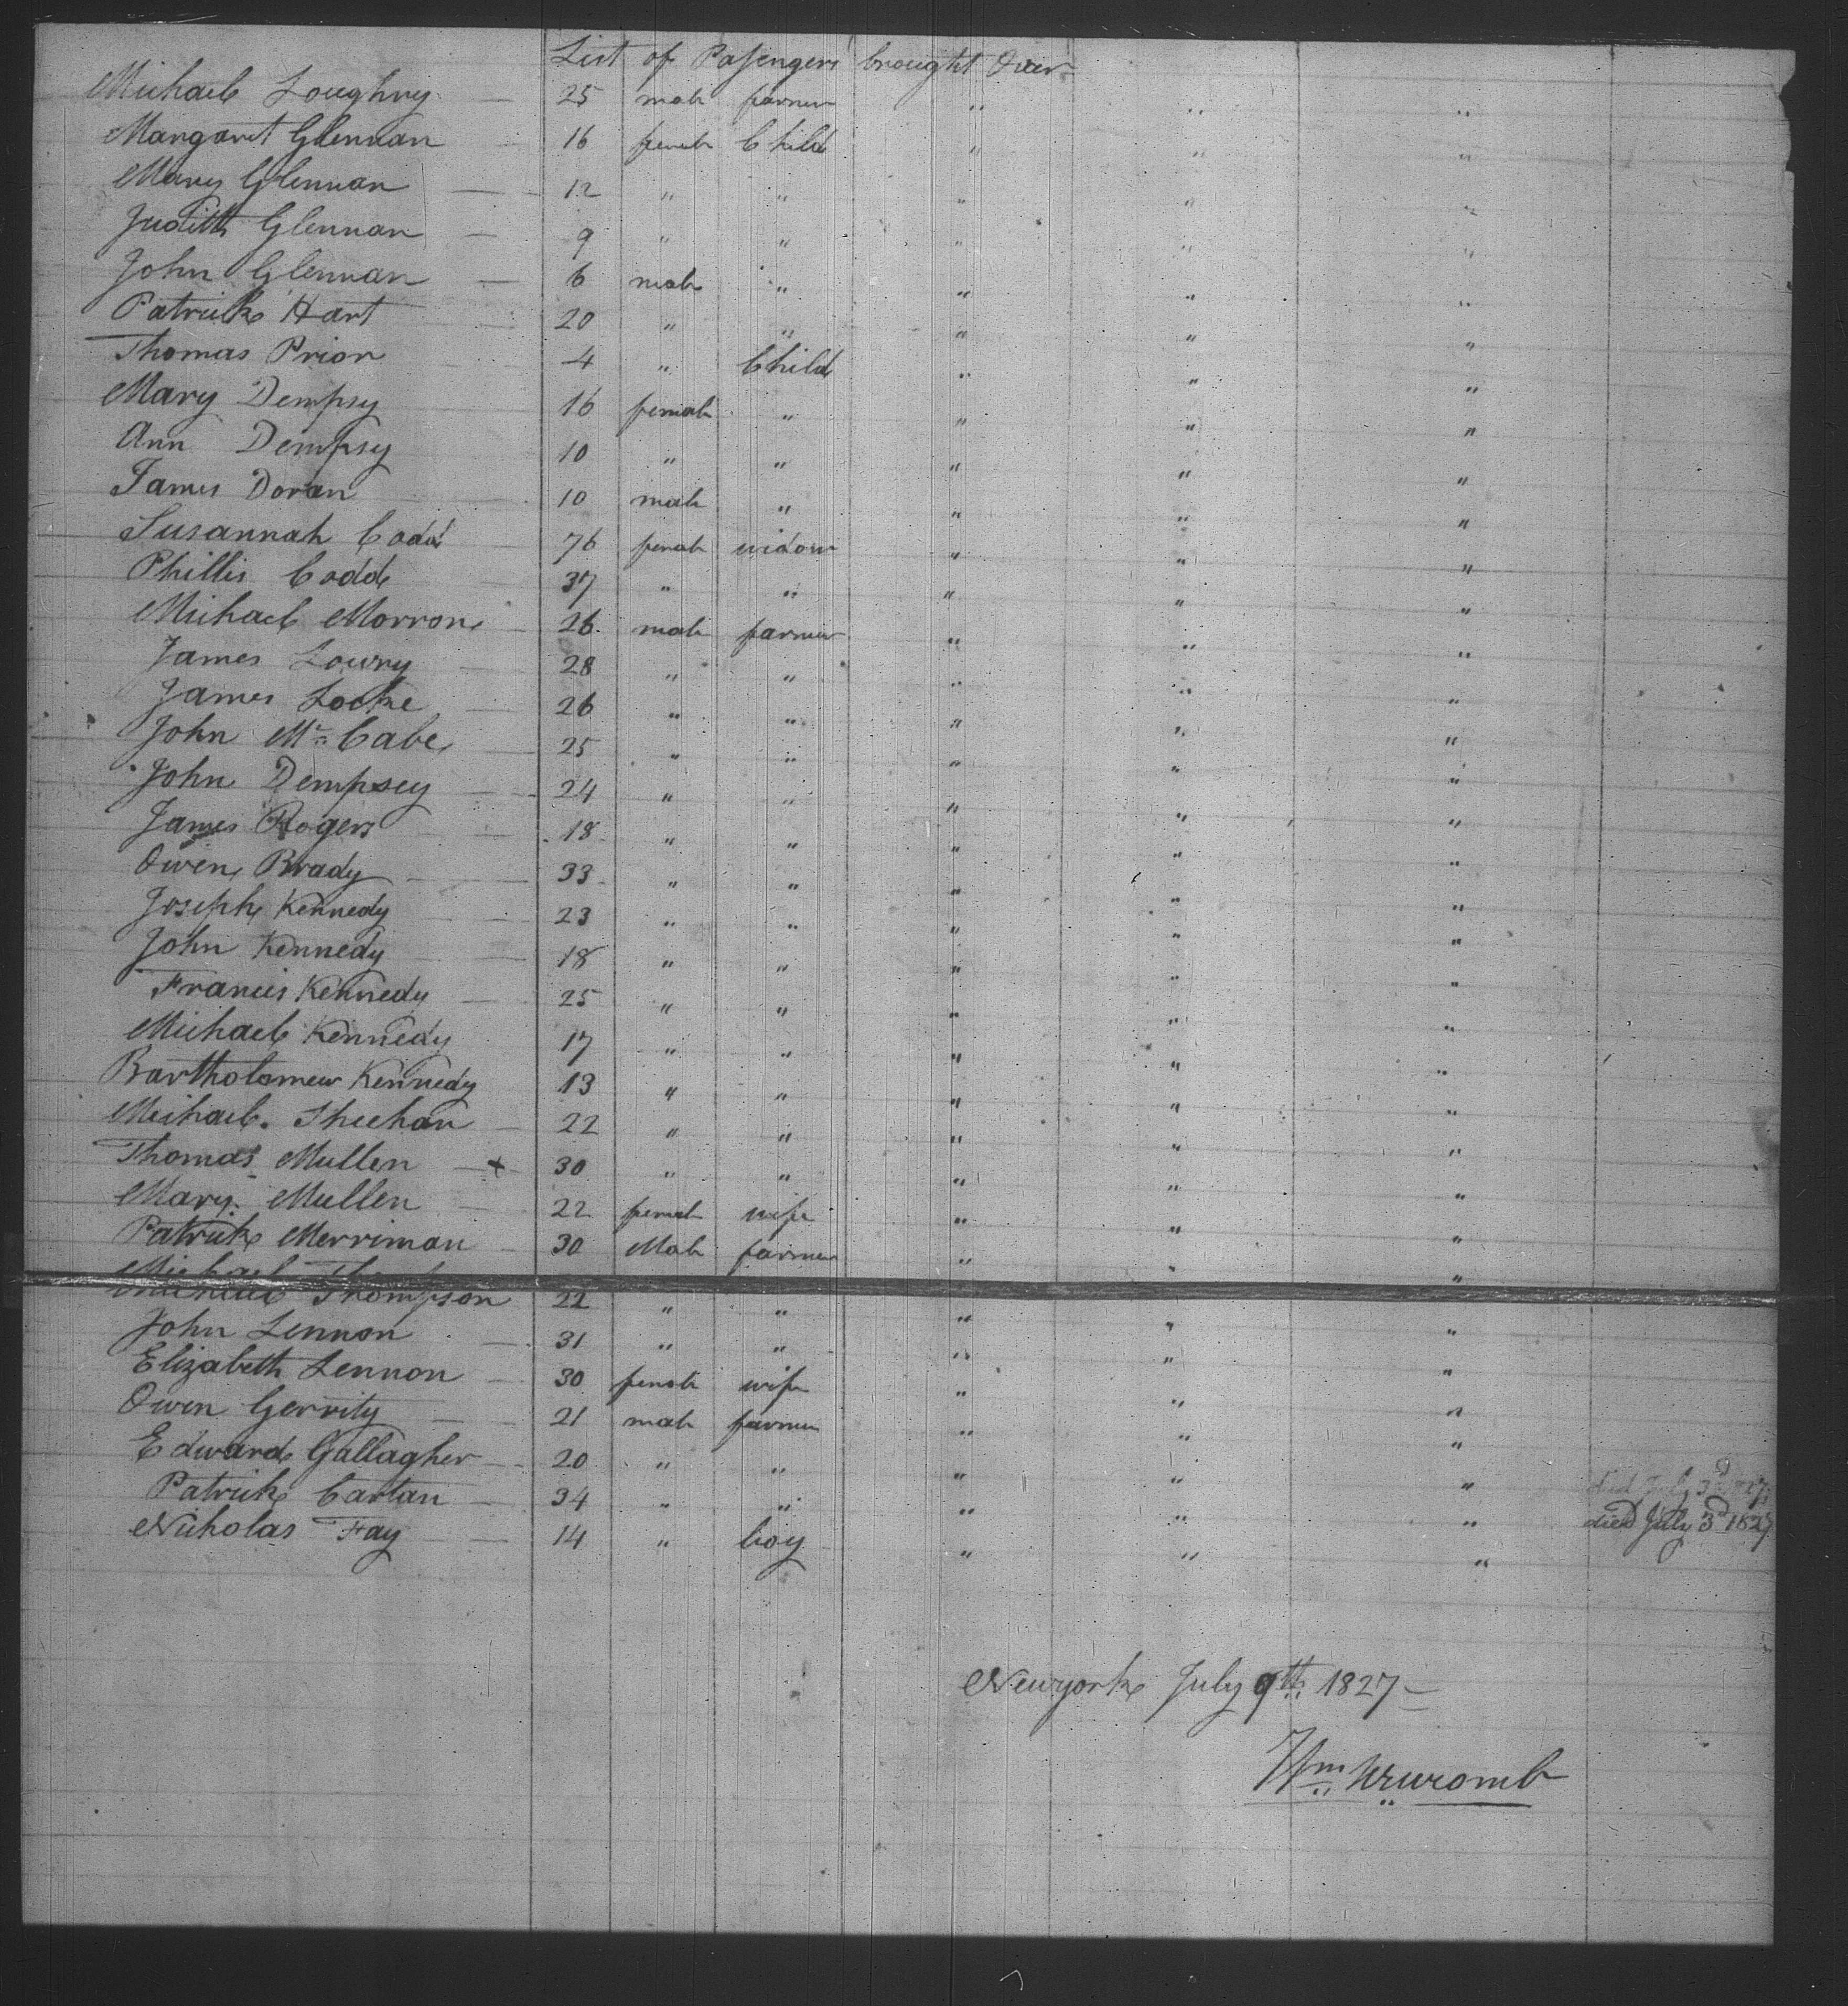 List of Passengers brought Over
Michael Loughry — 25 male farmer " " "
Margaret Glennan 16 female Child " " "
Mary Glennan — 12 " " " " "
Judith Glennan — 9 " " " " "
John Glennan — 6 male " " " "
Patrick Hart 20 " " " " "
Thomas Prior 4 " Child " " "
Mary Dempsy 16 female " " " "
Ann Dempsy 10 " " " " "
James Doran 10 male " " " "
Susannah Codd 76 female widow " " "
Phillis Codd 37 " " " " "
Michael Morron 26 male farmer " " "
James Lowry — 28 " " " " "
James Locke — 26 " " " " "
John Mc Cabe — 25 " " " " "
John Dempsey — 24 " " " " "
James Rogers 18 " " " " "
Owen Brady — 33 " " " " "
Joseph Kennedy — 23 " " " " "
John Kennedy — 18 " " " " "
Francis Kennedy — 25 " " " " "
Michael Kennedy 17 " " " " "
Bartholomew Kennedy 13 " " " " "
Michael Sheehan — 22 " " " " "
Thomas Mullen — + 30 " " " " "
Mary Mullen — 22 female wife " " "
Patrick Merriman — 30 Male farmer " " "
Michael Thompson 22 " " " " "
John Lennon — 31 " " " " "
Elizabeth Lennon — 30 female wife " " "
Owen Gerrity — 21 male farmer " " "
Edward Gallagher — 20 " " " " "
Patrick Cartan — 34 " " " " " died July 3d 1827
Nicholas Fay — 14 " boy " " " died July 3d 1827
Newyork July 9th 1827 —
Wm Newcomb